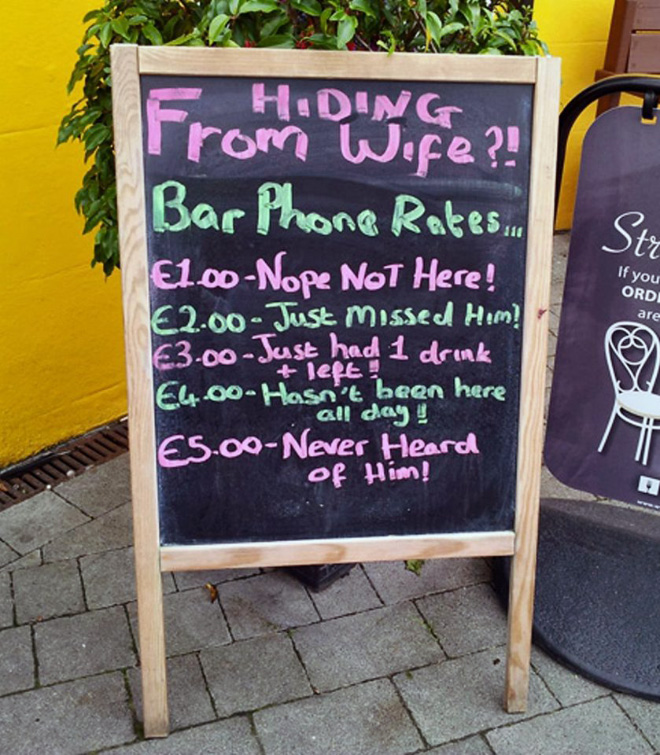 HIDING
From Wife?!
Bar Phone Rates...
€1.00-Nope NOT Here!
€2.00-Just Missed Him?
€3.00-Just had 1 drink
+ left!!
€4.00-Hasn't been here
all day!!
€5.00-Never Heard
of Him!
If you
ORD
are